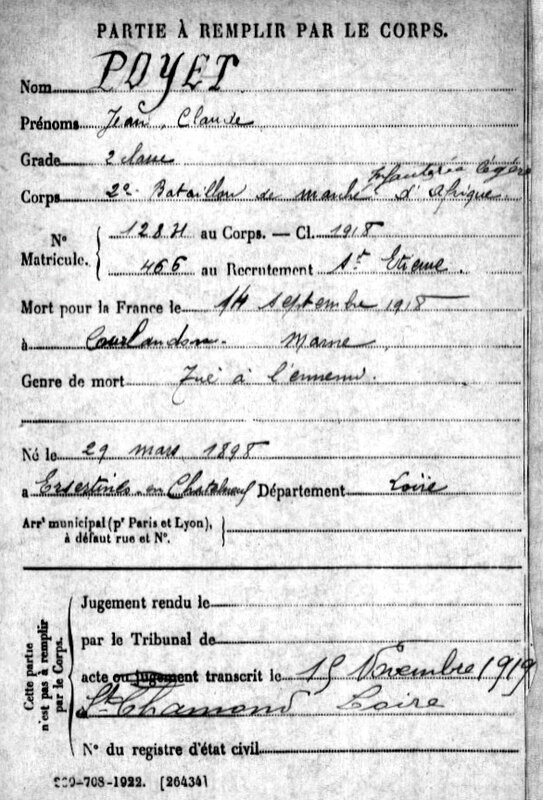 PARTIE À REMPLIR PAR LE CORPS.
Nom POYET
Prénoms Jean, Claude
Grade 2 classe
Infanterie légère
Corps 2e Bataillon de marche d'Afrique
N° Matricule.
128H au Corps. — Cl. 1918
466 au Recrutement St Etienne.
Mort pour la France le 14 septembre 1918
à Courlandon. Marne
Genre de mort Tué à l'ennemi.
Né le 29 mars 1898
à Essertines-en-Chatelneuf Département Loire
Arrt municipal (pr Paris et Lyon),
à défaut rue et N°.
Cette partie n'est pas à remplir par le Corps.
Jugement rendu le
par le Tribunal de
acte ou jugement transcrit le 15 Novembre 1919
St Chamond Loire
N° du registre d'état civil
-708-1922. [26434]